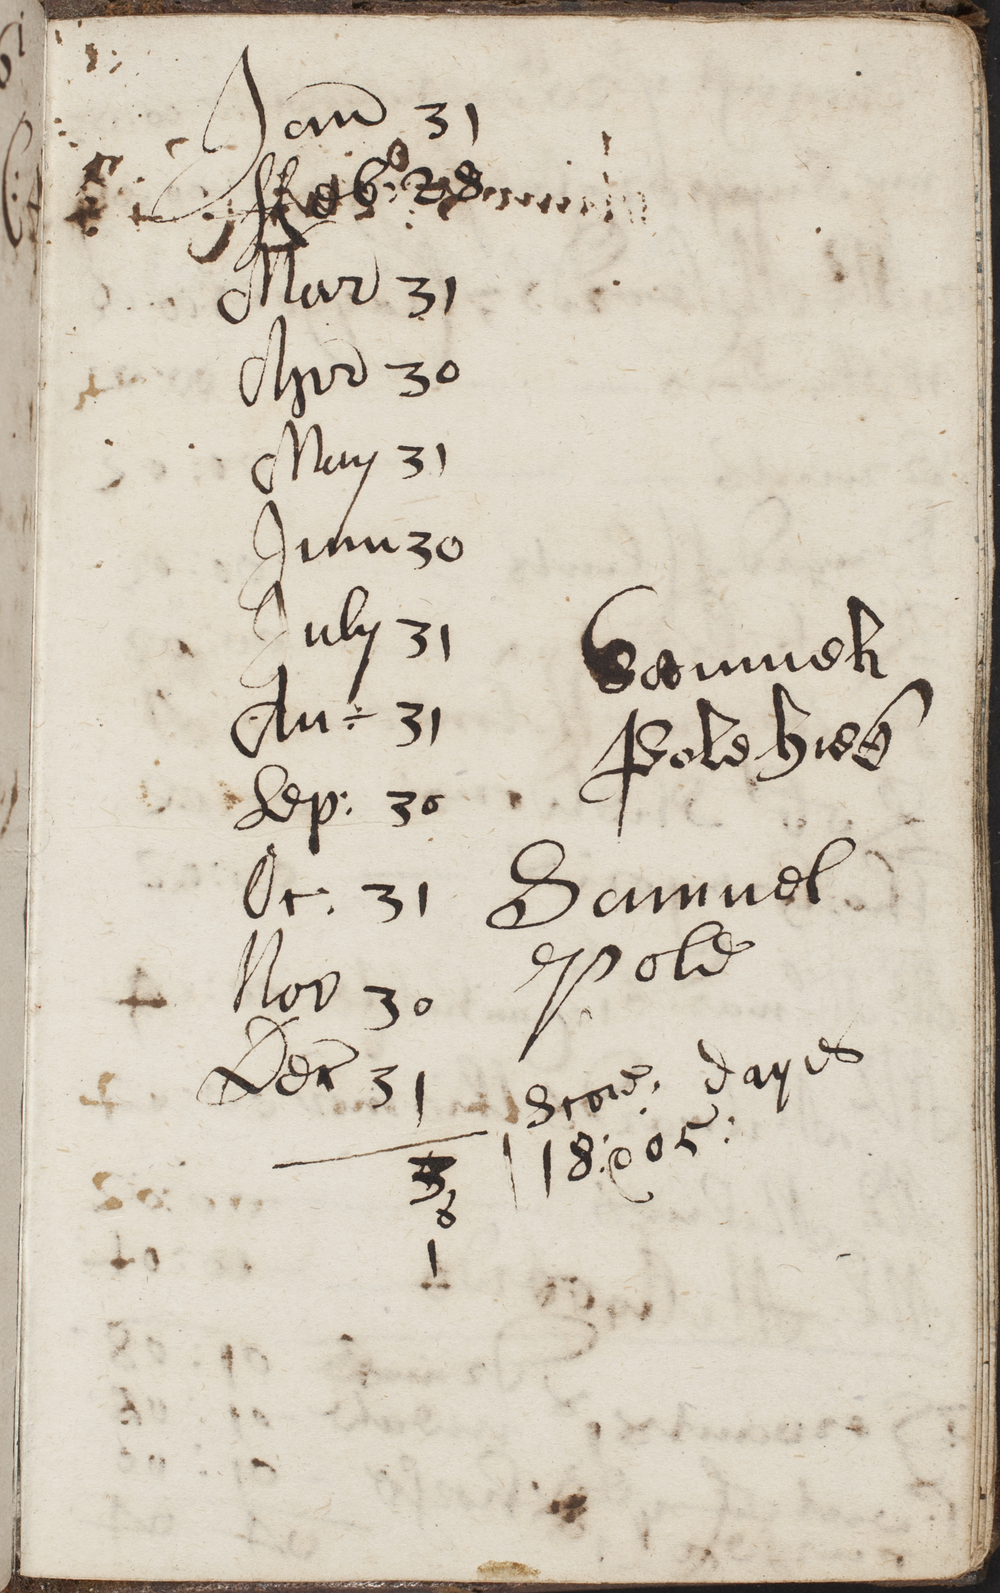 Jan 31
Feb: 28
Mar 31
Apr 30
May 31
June 30
July 31
Au÷ 31
Sep: 30
Oc: 31
Nov 30
Dec 31
Samuell
Pole his
Samuel
Pole
Score: dayes
18: 05:
1